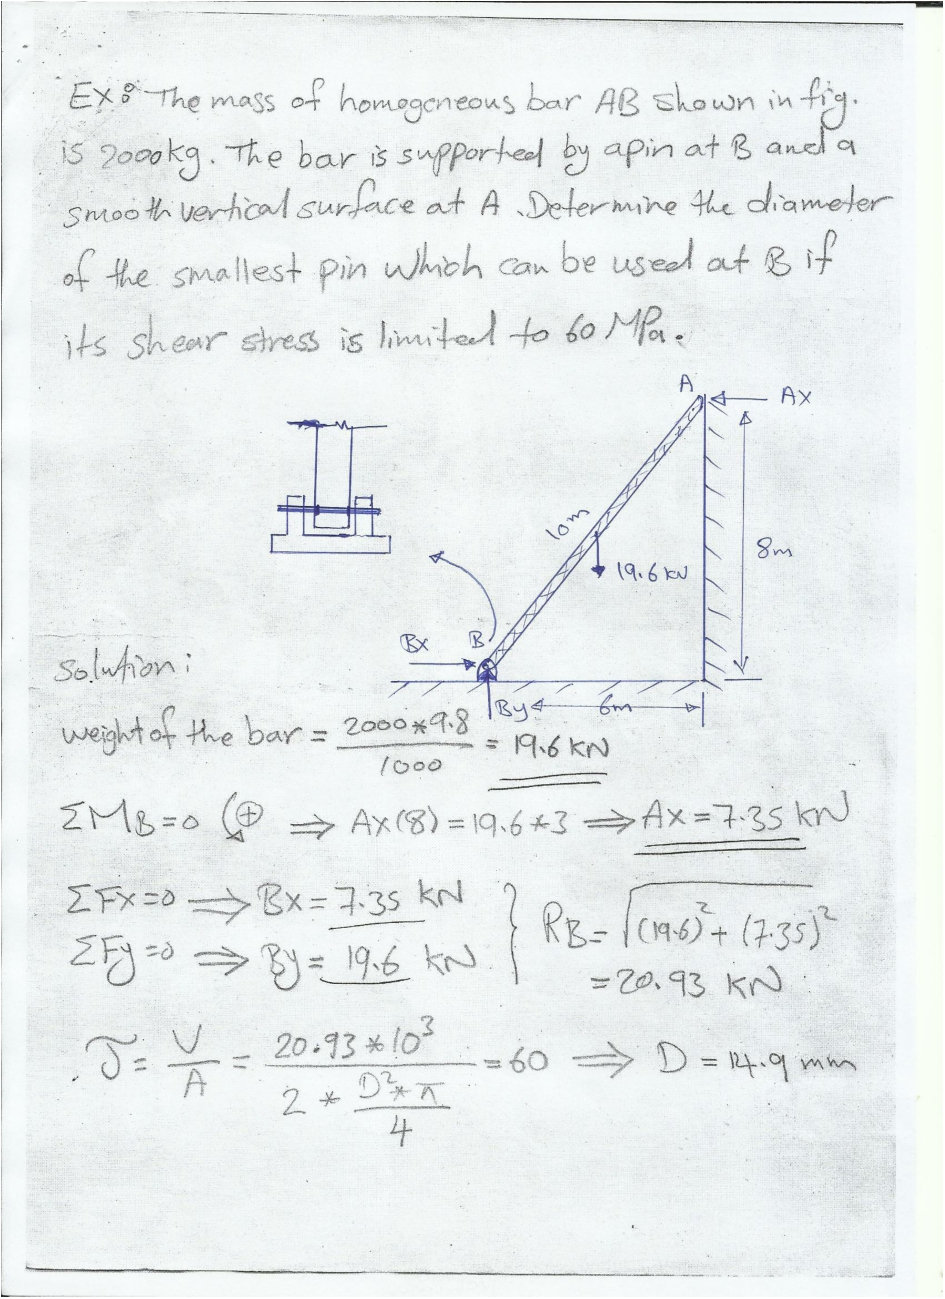 EX: The mass of homogeneous bar AB shown in fig.
is 2000kg. The bar is supported by a pin at B and a
smooth vertical surface at A. Determine the diameter
of the smallest pin which can be used at B if
its shear stress is limited to 60 MPa.
A
AX
10m
8m
19.6 kN
BX
B
By
6m
Solution:
weight of the bar = 2000*9.8/1000 = 19.6 kN
ΣMB=0 ⊕ ⇒ AX(8) = 19.6*3 ⇒ AX = 7.35 kN
ΣFX=0 ⇒ BX = 7.35 kN
ΣFy=0 ⇒ By = 19.6 kN
RB = √(19.6)² + (7.35)²
= 20.93 KN
τ = V/A = 20.93*10³ / 2 * D²*π/4 = 60 ⇒ D = 14.9 mm